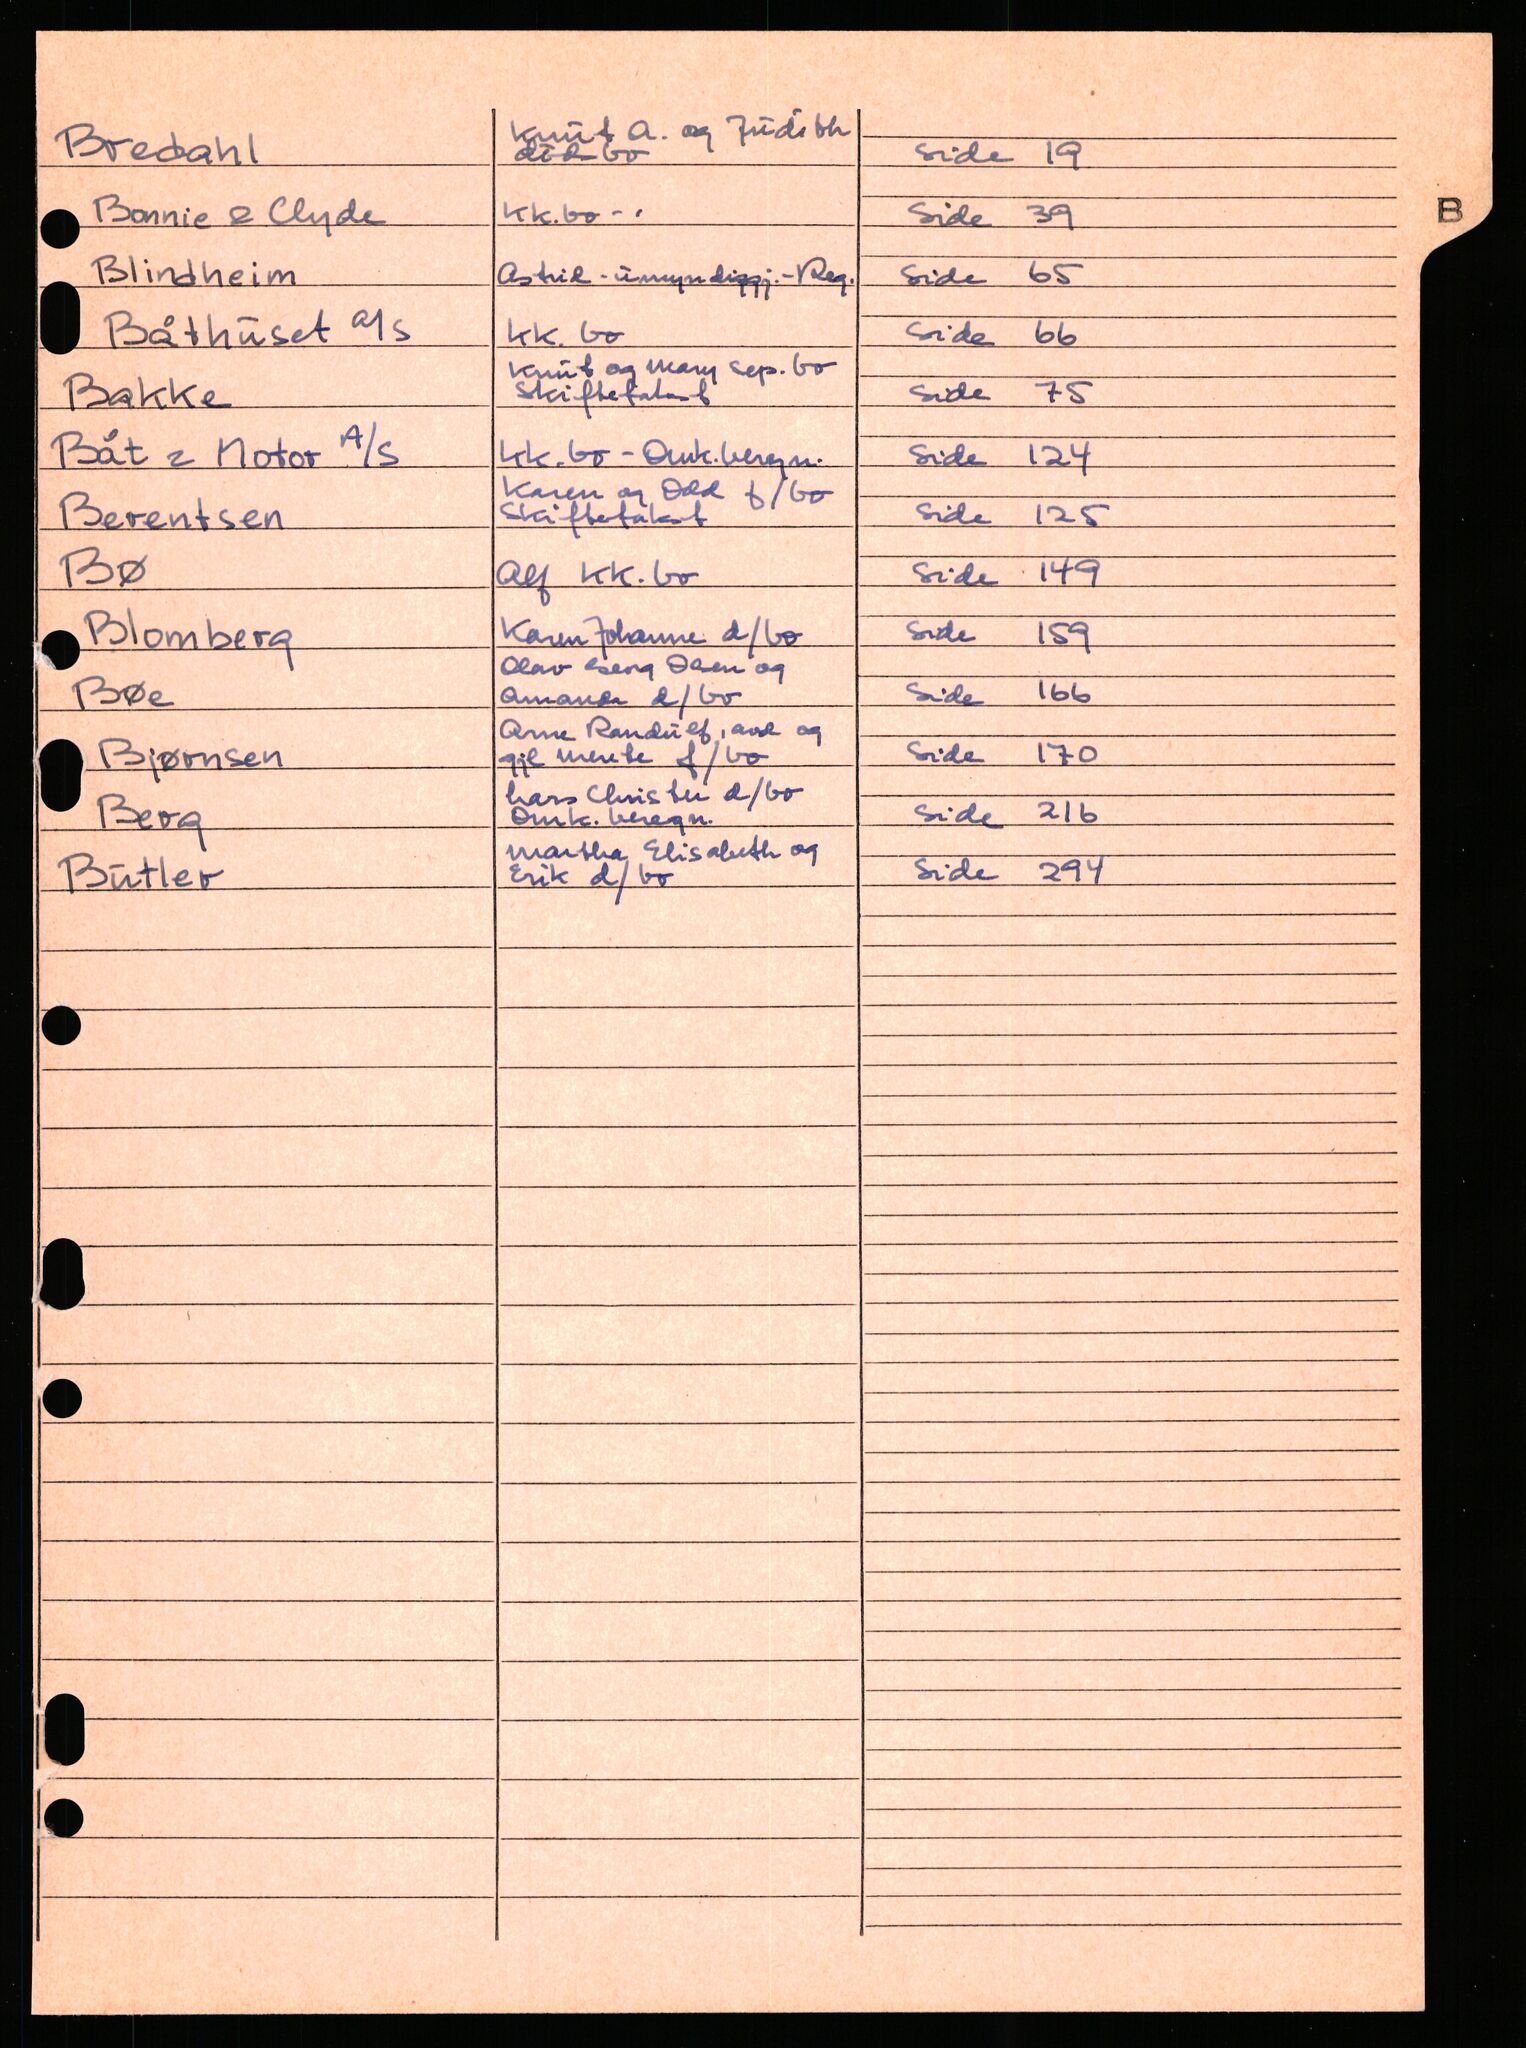 B
Bredahl Knut A. og Judith side 19
død bo
Bonnie & Clyde kk.bo - . Side 39
Blindheim Astrid - umyndiggj. - Reg. Side 65
Båthuset A/S kk. bo Side 66
Knut og Mary sep. bo
Bakke Skiftetakst Side 75
Båt & Motor A/S kk. bo - Omk.beregn. Side 124
Karen og Odd f/bo
Berentsen Skiftetakst Side 125
Bø Alf kk. bo Side 149
Blomberg Karen Johanne d/bo Side 159
Olav Olsen og
Bøe Amanda d/bo Side 166
Arne Randulf, og
Bjørnsen Merete f/bo Side 170
Lars Christer d/bo
Berg Omk. beregn. Side 216
Martha Elisabeth og
Butler Erik d/bo Side 294